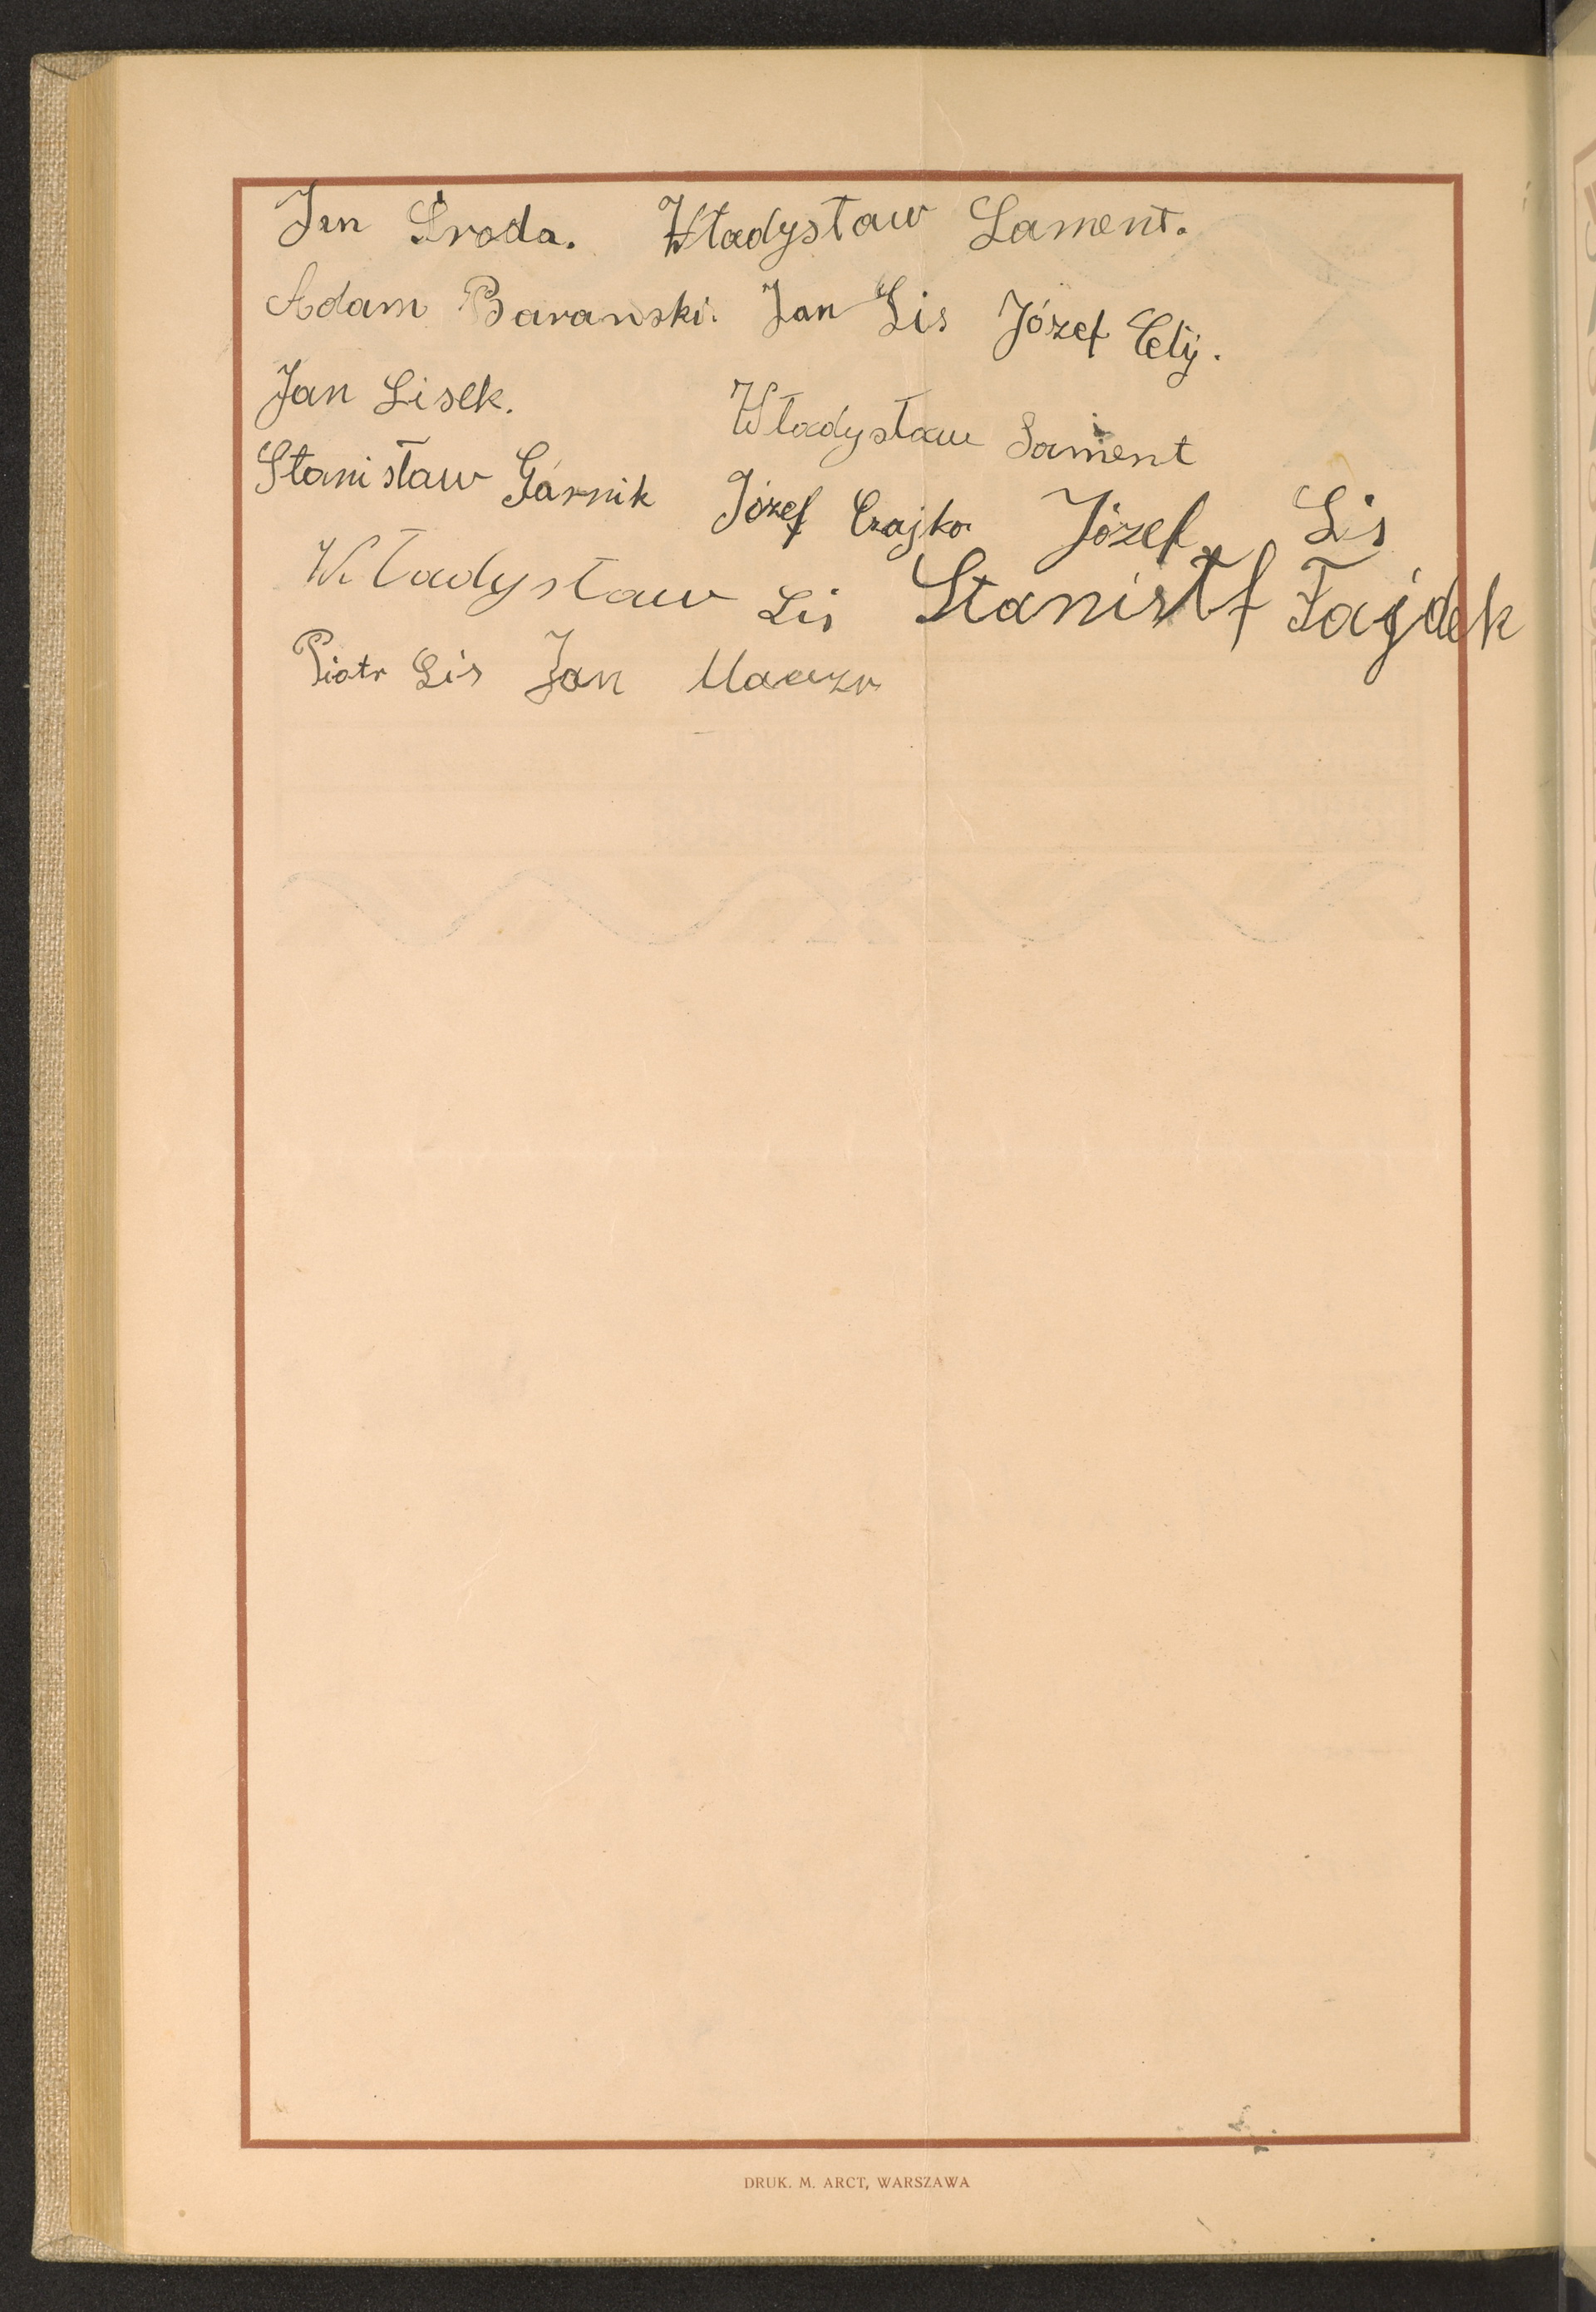 Jan Sroda. Władysław Lament.
Adam Baranski. Jan Lis Józef Cely.
Jan Lisek. Władysław Lament
Stanisław Garnik Józef Czajka Józef Lis
Władysław Lis Fajdek
Piotr Lis Jan
DRUK. M. ARCT, WARSZAWA